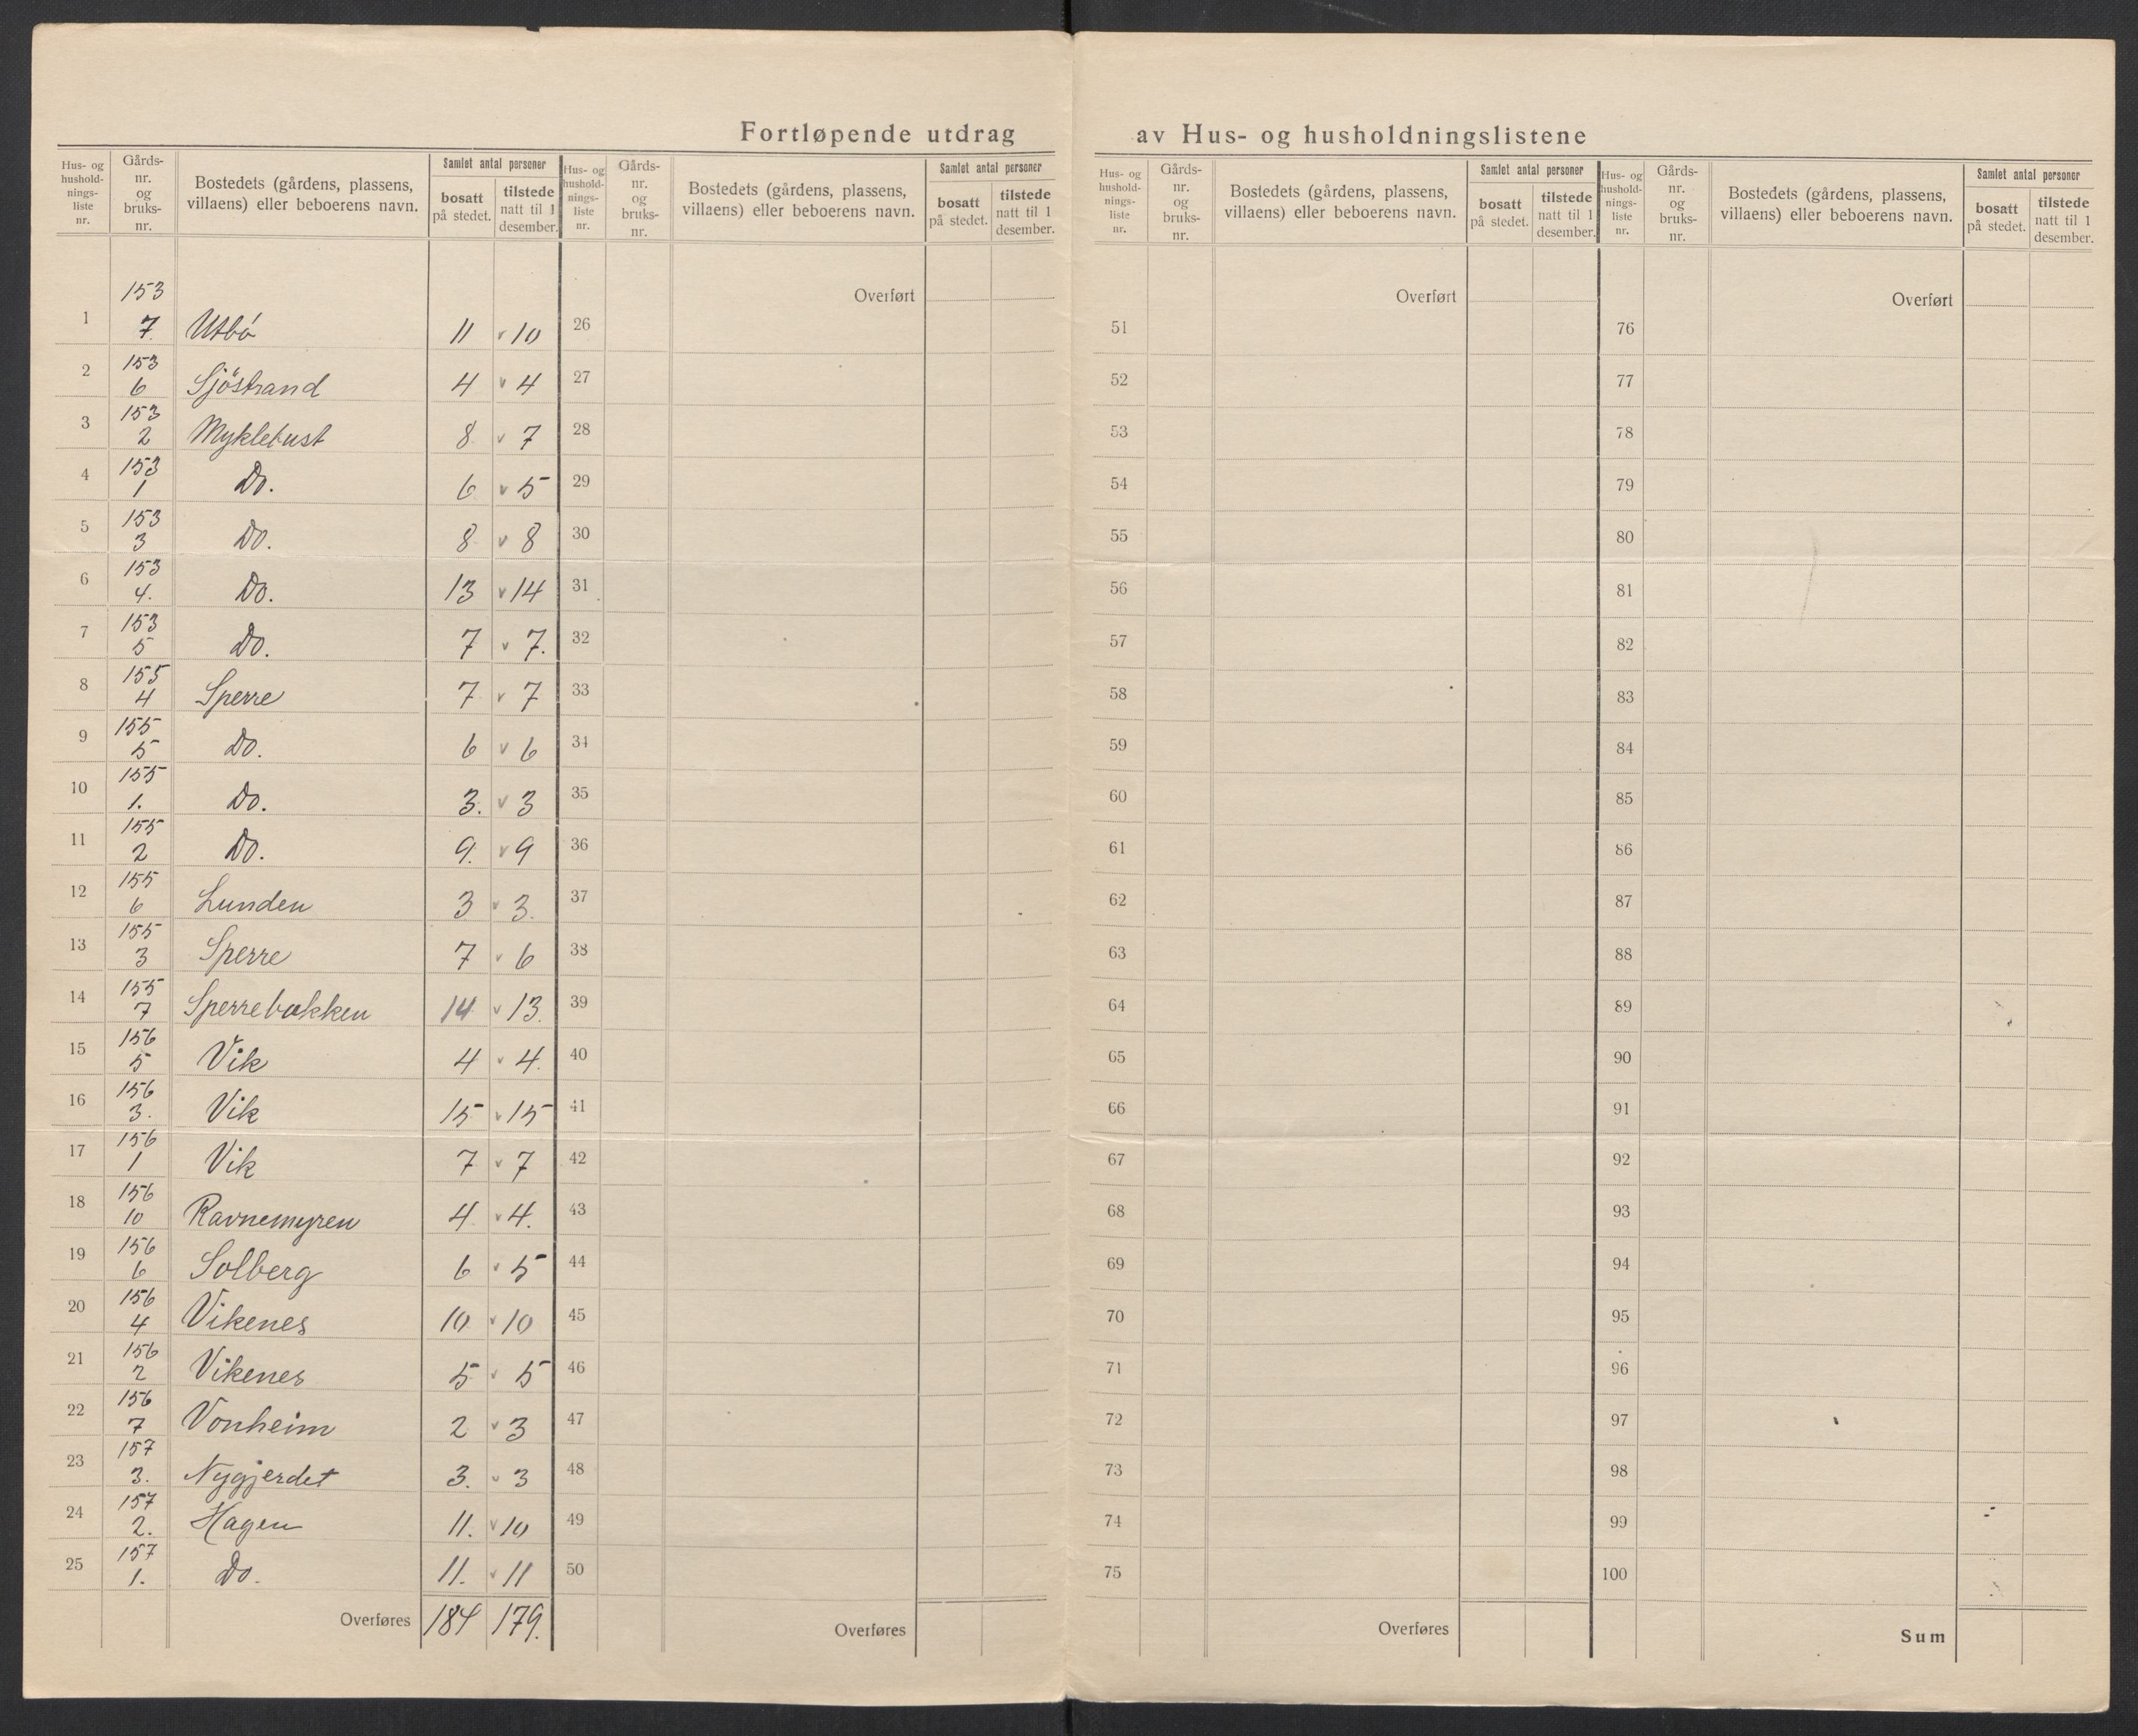 Fortløpende utdrag av Hus- og husholdningslistene
Hus- og hushold-nings-liste nr. | Gårds-nr. og bruks-nr. | Bostedets (gårdens, plassens, villaens) eller beboerens navn. | Samlet antal personer | bosatt på stedet. | tilstede natt til 1 desember.
1 153 7. Utbö 11 v 10
2 153 6 Sjöstrand 4 v 4
3 153 2 Myklebust 8 v 7
4 153 1 Do. 6 v 5
5 153 3 Do. 8 v 8
6 153 4. Do. 13 v 14
7 153 5 Do. 7 v 7.
8 155 4 Sperre 7 v 7
9 155 5 Do. 6 v 6
10 155 1. Do. 3. v 3
11 155 2 Do. 9. v 9
12 155 6 Lunden 3 v 3.
13 155 3 Sperre 7 v 6
14 155 7 Sperrebakken 14 v 13.
15 156 5 Vik 4 v 4.
16 156 3. Vik 15 v 15
17 156 1 Vik 7 v 7
18 156 10 Ravnemyren 4 v 4.
19 156 6 Solberg 6 v 5
20 156 4 Vikenes 10 v 10
21 156 2 Vikenes 5 v 5
22 156 7 Vonheim 2 v 3
23 157 3. Nygjerdet 3. v 3
24 157 2. Hagen 11. v 10
25 157 1. Do. 11. v 11
Overføres 184 179.
Hus- og hushold-nings-liste nr. | Gårds-nr. og bruks-nr. | Bostedets (gårdens, plassens, villaens) eller beboerens navn. | Samlet antal personer | bosatt på stedet. | tilstede natt til 1 desember.
Overført
26
27
28
29
30
31
32
33
34
35
36
37
38
39
40
41
42
43
44
45
46
47
48
49
50
Overføres
Hus- og hushold-nings-liste nr. | Gårds-nr. og bruks-nr. | Bostedets (gårdens, plassens, villaens) eller beboerens navn. | Samlet antal personer | bosatt på stedet. | tilstede natt til 1 desember.
Overført
51
52
53
54
55
56
57
58
59
60
61
62
63
64
65
66
67
68
69
70
71
72
73
74
75
Overføres
Hus- og hushold-nings-liste nr. | Gårds-nr. og bruks-nr. | Bostedets (gårdens, plassens, villaens) eller beboerens navn. | Samlet antal personer | bosatt på stedet. | tilstede natt til 1 desember.
Overført
76
77
78
79
80
81
82
83
84
85
86
87
88
89
90
91
92
93
94
95
96
97
98
99
100
Sum